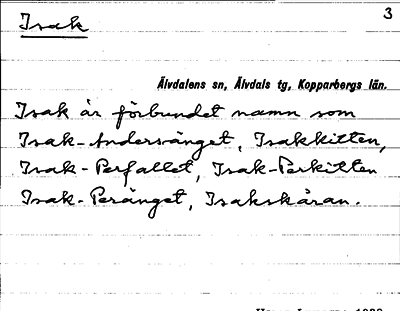 3
Isak
Älvdalens sn, Älvdals tg, Kopparbergs län.
Isak är förbundet namn som
Isak-Andersänget, Isakkitten,
Isak-Perfallet, Isak-Perkitten
Isak-Peränget, Isakskåran.